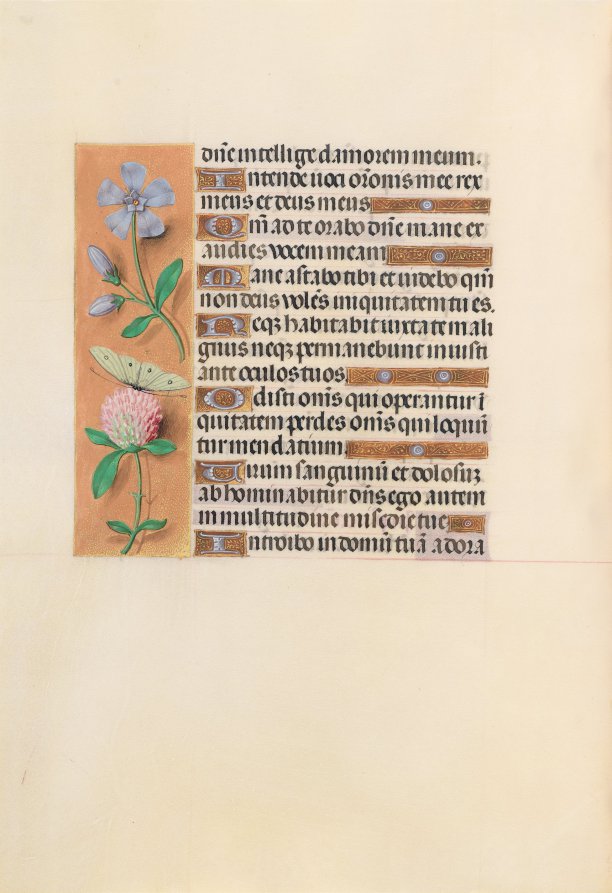 dñe intellige clamorem meum.
Intende uoci orõnis mee rex
meus et deus meus
Qm̃ ad te orabo dñe mane ex
audies vocem meam
Mane astabo tibi et uidebo qm̃
non deus volẽs iniquitatem tu es.
Neqz habitabit iuxta te mali
gnus neqz permanebunt iniusti
ante oculos tuos
Odisti om̃s qui operantur ĩ
quitatem perdes om̃s qui loquũ
tur mendatium.
Uirum sanguinũ et dolosuz
abhominabitur dñs ego autem
in multitudine misc̃oie tue
Introibo in domũ tuã adora